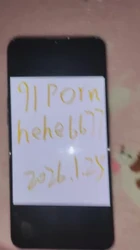 91 porn
hehe6677
2026.1.25